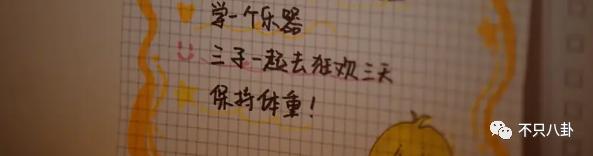 学一个乐器
三子一起去狂欢三天
保持体重!
不只八卦